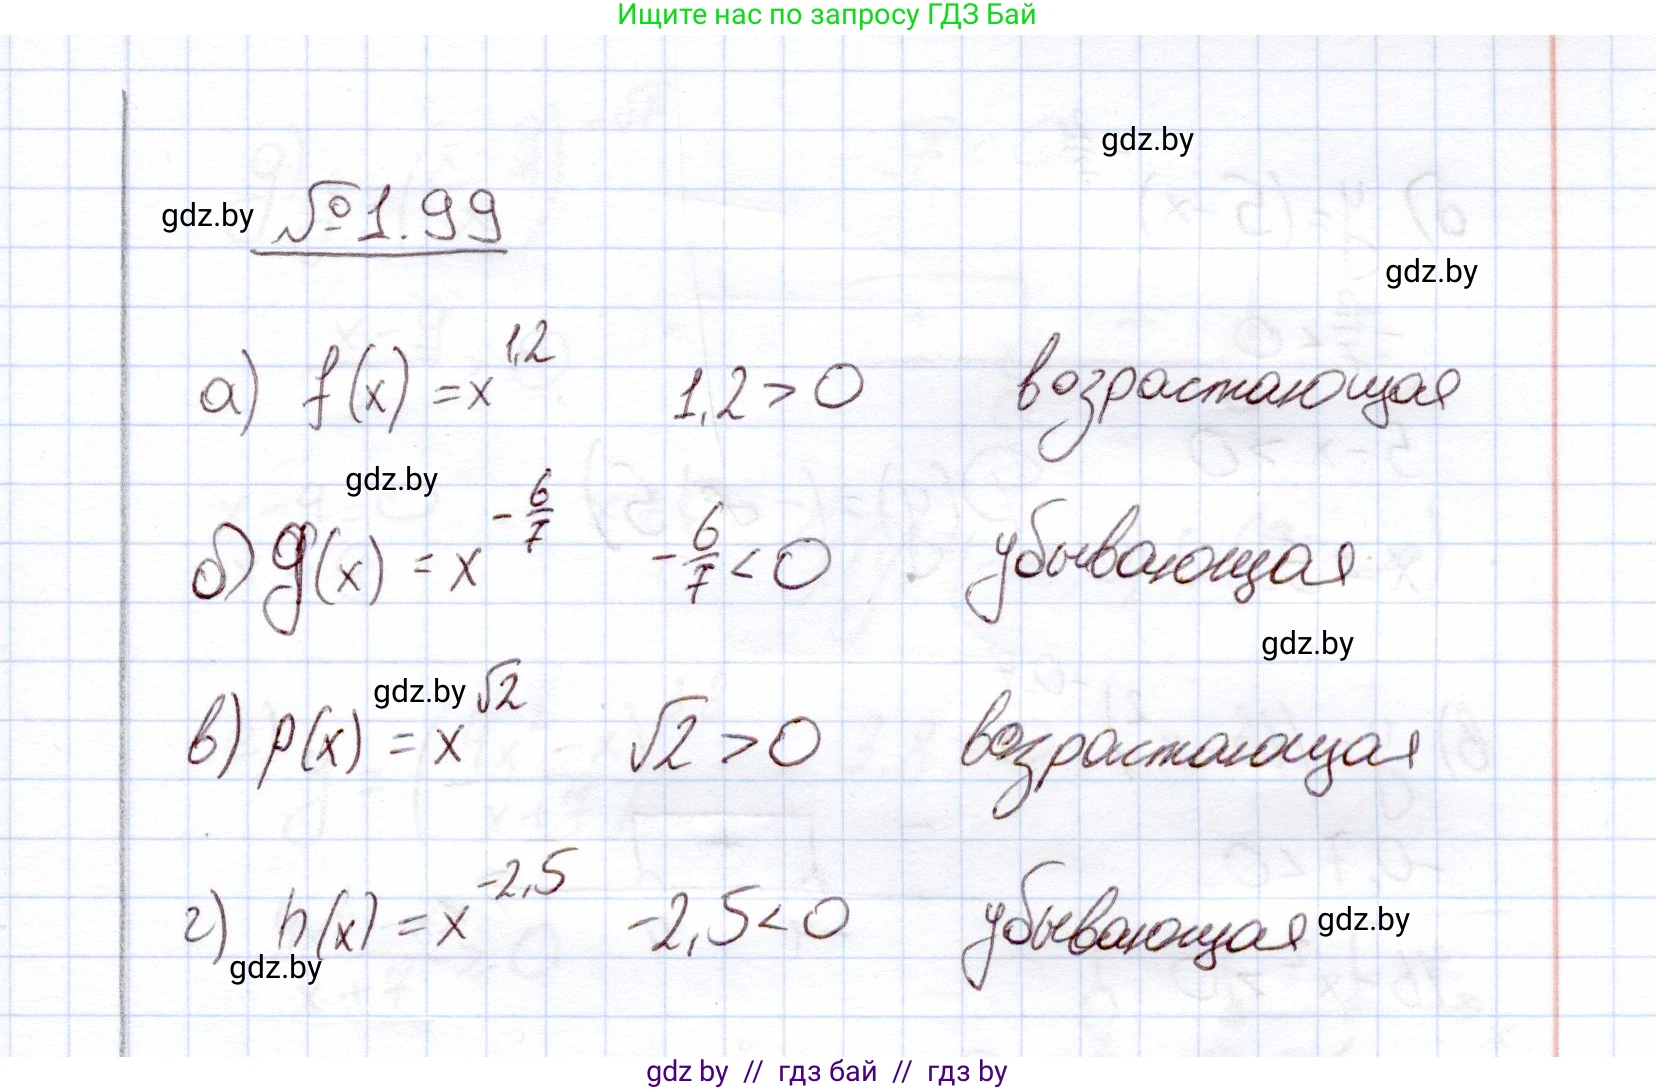 Ищите нас по запросу ГДЗ Бай
gdz.by
gdz.by № 1.99
gdz.by
а) f(x) = x^{1,2} 1,2 > 0 возрастающая
gdz.by
б) g(x) = x^{-6/7} -6/7 < 0 убывающая
gdz.by
gdz.by
в) p(x) = x^{√2} √2 > 0 возрастающая
г) h(x) = x^{-2,5} -2,5 < 0 убывающая gdz.by
gdz.by
gdz by // гдз бай // гдз by